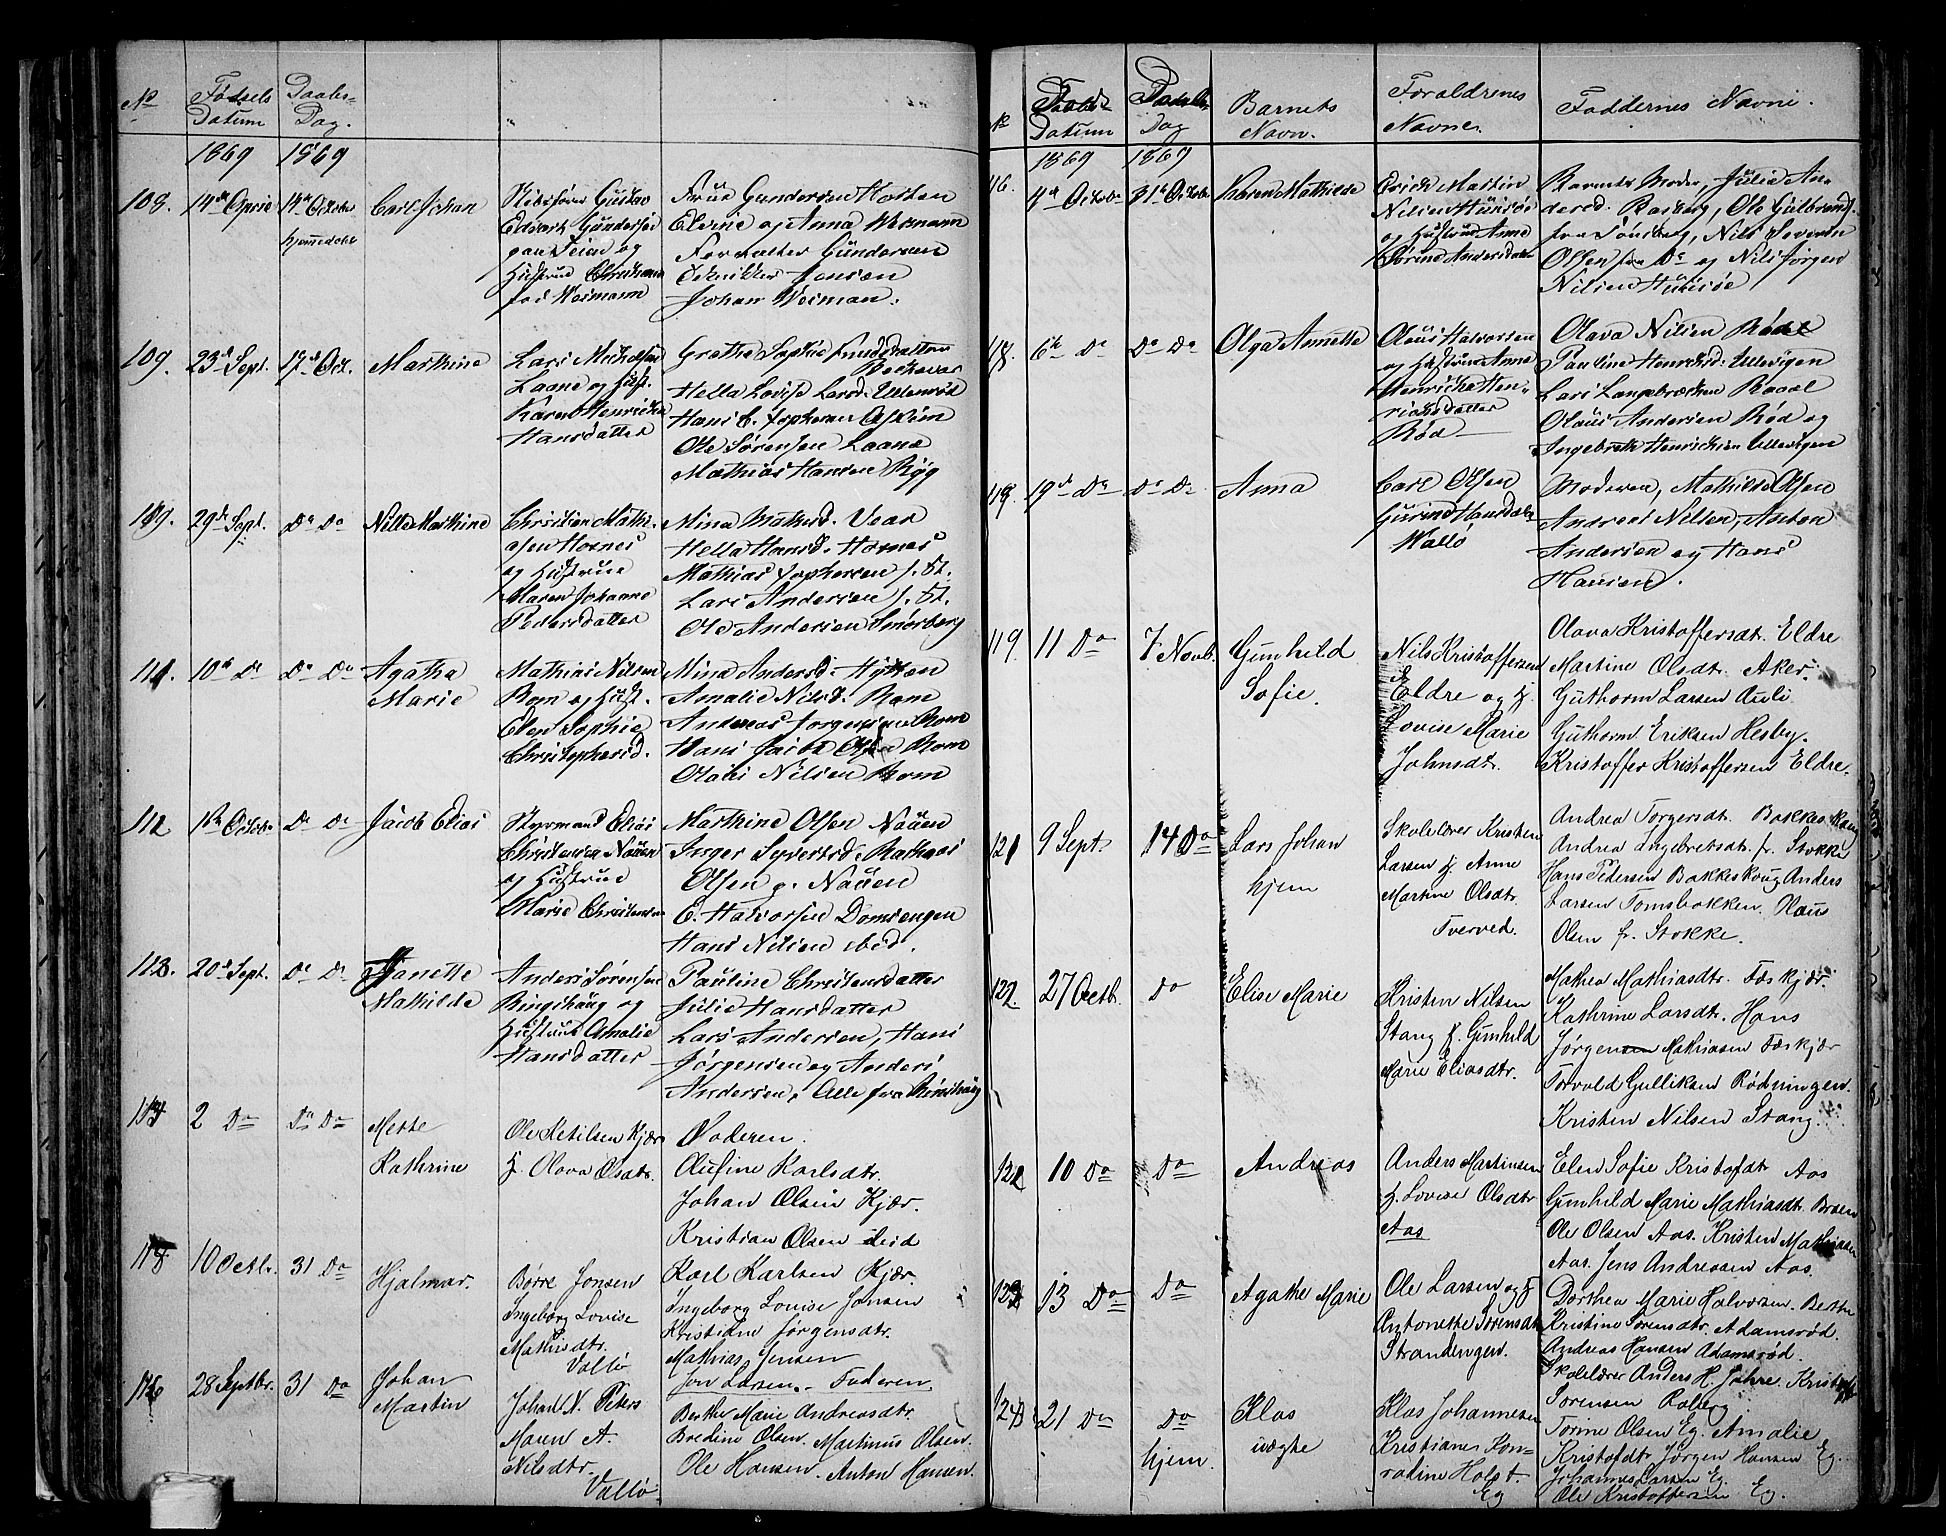 No
Fødsels
Datum
Daabs-
Dag.
1869
1869
108.
14de April
14de Octobr
hjemmedøbt
Carl Johan
Gustav
Edvard Gundersen
og
Hustrue Christiane
fød Weimann
Frue Gundersen Horten
Elvine og Anna Weimann
Forvalter Gundersen
Jensen
Johan Weiman.
109.
23de Sept.
17de Oct.
Mathine
Lars Michelsen
Laane og Hust.
Karen Henrikke
Hansdatter
Grethe Sophie Knudsdatter
Hella Lovise Larsd. Ullenrød
Hans C. Jophersen Askim
Ole Sørensen Laane
Mathias Hansen Ryg
110.
29de Sept.
Do Do
Nille Mathine
Christian Mathi-
asen Hornes
og Hustrue
Maren Johanne
Pedersdatter
Mina Mathisd. Vear
Hella Hansd. Hornes
Mathias Jophersen f. St.
Lars Andersen f. St.
Ole Andersen Smørberg
111.
10de Do
Do Do
Agatha
Marie
Mathias Nilsen
Rom og Hust.
Elen Sophie
Christophersd.
Mina Andersd.
Amalie Nilsd. Rom
Andreas Jørgensen Rom
Hans Jacob Olsen Rom
Olaus Nilsen Rom
112
1ste Octobr
Do Do
Jacob Elias
Styrmand Elias
Christensen Nauen
og Hustrue
Marie Christensen
Mathine Olsen Nauen
Inger Syvertsd. Mathias
Olsen p. Nauen
C. Halvorsen Domsengen
Hans Nilsen ibid.
113.
20de Sept.
Do Do
Janette
Mathilde
Anders Sørensen
Ringshaug og
Hustrue Amalie
Hansdatter
Pauline Christensdatter
Julie Hansdatter
Lars Andersen, Hans
Jørgensen og Anders
Andersen, Alle fra Ringshaug
114
2 Do
Do Do
Mette
Kathrine
Ole Ketilsen Kjær
H. Olava Olsdtr.
Moderen.
Olufine Karlsdtr.
Johan Olsen Kjær.
Kristian Olsen ibid
Karl Karlsen Kjær.
115
10 Octbr.
31 Do
Hjalmar.
Børre Jonsen
Ingeborg Lovise
Mathisdtr.
Vallø
Ingeborg Louise Jonsen
Kristiane Jørgensdtr.
Mathias Jensen
Jon Larsen. Faderen
116
28 Septbr.
31 Do
Johan
Martin
Johan N. Peters
Maren A.
Nilsdtr.
Vallø
Berthe Marie Andreasdtr.
Bredine Olsen. Martinus Olsen.
Ole Hansen. Anton Hansen.
No
Fødsels
Datum
Daabs
Dag
Barnets
Navn.
Forældrenes
Navne.
Faddernes Navne.
1869
1869
116.
4de Octobr
31te Octobr
Karen Mathilde
Erick Martin
Nilsen Husøe
og Hustrue Anne
Karine Andersdatter
Barnets Moder, Julie An-
dersd. Basberg, Ole Gulbrands.
fra Tønsberg, Nils Severin
Olsen fra Do og Nils Jørgen
Nilsen Husøe
118.
6te Do
Do Do
Olga Annette
Olaus Halvorsen
og Hustrue Anne
Henrikke Hen-
riksdatter
Rød
Olava Nilsen Rød
Pauline Henriksd. Ullevigen
Lars Langebrækken Basal
Olaus Andersen Rød og
Ingebreth Henricksen Ullevigen
118.
19de Do
Do Do
Anna
Carl Olsen
Gurine Hansdatter
Wallø
Moderen, Mathilde Olsen
Andreas Nilsen, Anton
Andersen og Hans
Hansen.
119.
11 Do
7 Novb.
Gunhild
Sofie.
Nils Kristoffersen
Eldre og H.
Lovise Marie
Johnsdtr.
Olava Kristoffersdt. Eldre
Martine Olsdt. Aker.
Guthorm Larsen Auli
Guthorm Eriksen Hesby.
Kristoffer Kristoffersen Eldre.
121
9 Sept.
14 Do
Lars Johan
hjem
Skolelærer Kristen
Larsen H. Anne
Martine Olsdtr.
Tverved.
Andrea Torgersdt. Bakkeskaug
Andrea Ingebretsdt. fr. Stokke
Hans Pedersen Bakkeskaug Anders
Larsen Tomsbakken. Olaus
Olsen fr. Stokke.
122
27 Octb.
Do
Elise Marie
Kristen Nilsen
Stang H. Gunhild
Marie Eliasdtr.
Mathea Mathiasdtr. Føskjær.
Kathrine Larsdt. Hans
Jørgensen Mathiasen Føskjær
Torvald Gulliksen Rødningen.
Kristen Nilsen Stang.
122
10 Do
Do
Andreas
Anders Martinsen
H. Lovise Olsdtr
Aas
Elen Sofie Kristofdtr Aas
Gunhild Marie Mathiasdt. Bråen
Ole Olsen Aas. Kristen Mathiasen
Aas. Jens Andreasen Aas.
123
13 Do
Do
Agathe Marie
Ole Larsen og H
Antonette Sørensdt.
Strandengen.
Dorthea Marie Halvorsen. Berthe
Kristine Sørensdtr. Adamsrød.
Andreas Hansen Adamsrød.
Skolelærer Anders H. Jahre. Kristoffer
Sørensen Roberg
124
21 Do
Do
hjem.
Klas
uægte
Klas Johannesen
Kristiane Kon-
radine Holst.
Eg
Torine Olsen Eg. Amalie
Kristofdt. Jørgen Hansen Eg.
Johannes Larsen Eg.
Ole Kristoffersen Eg.